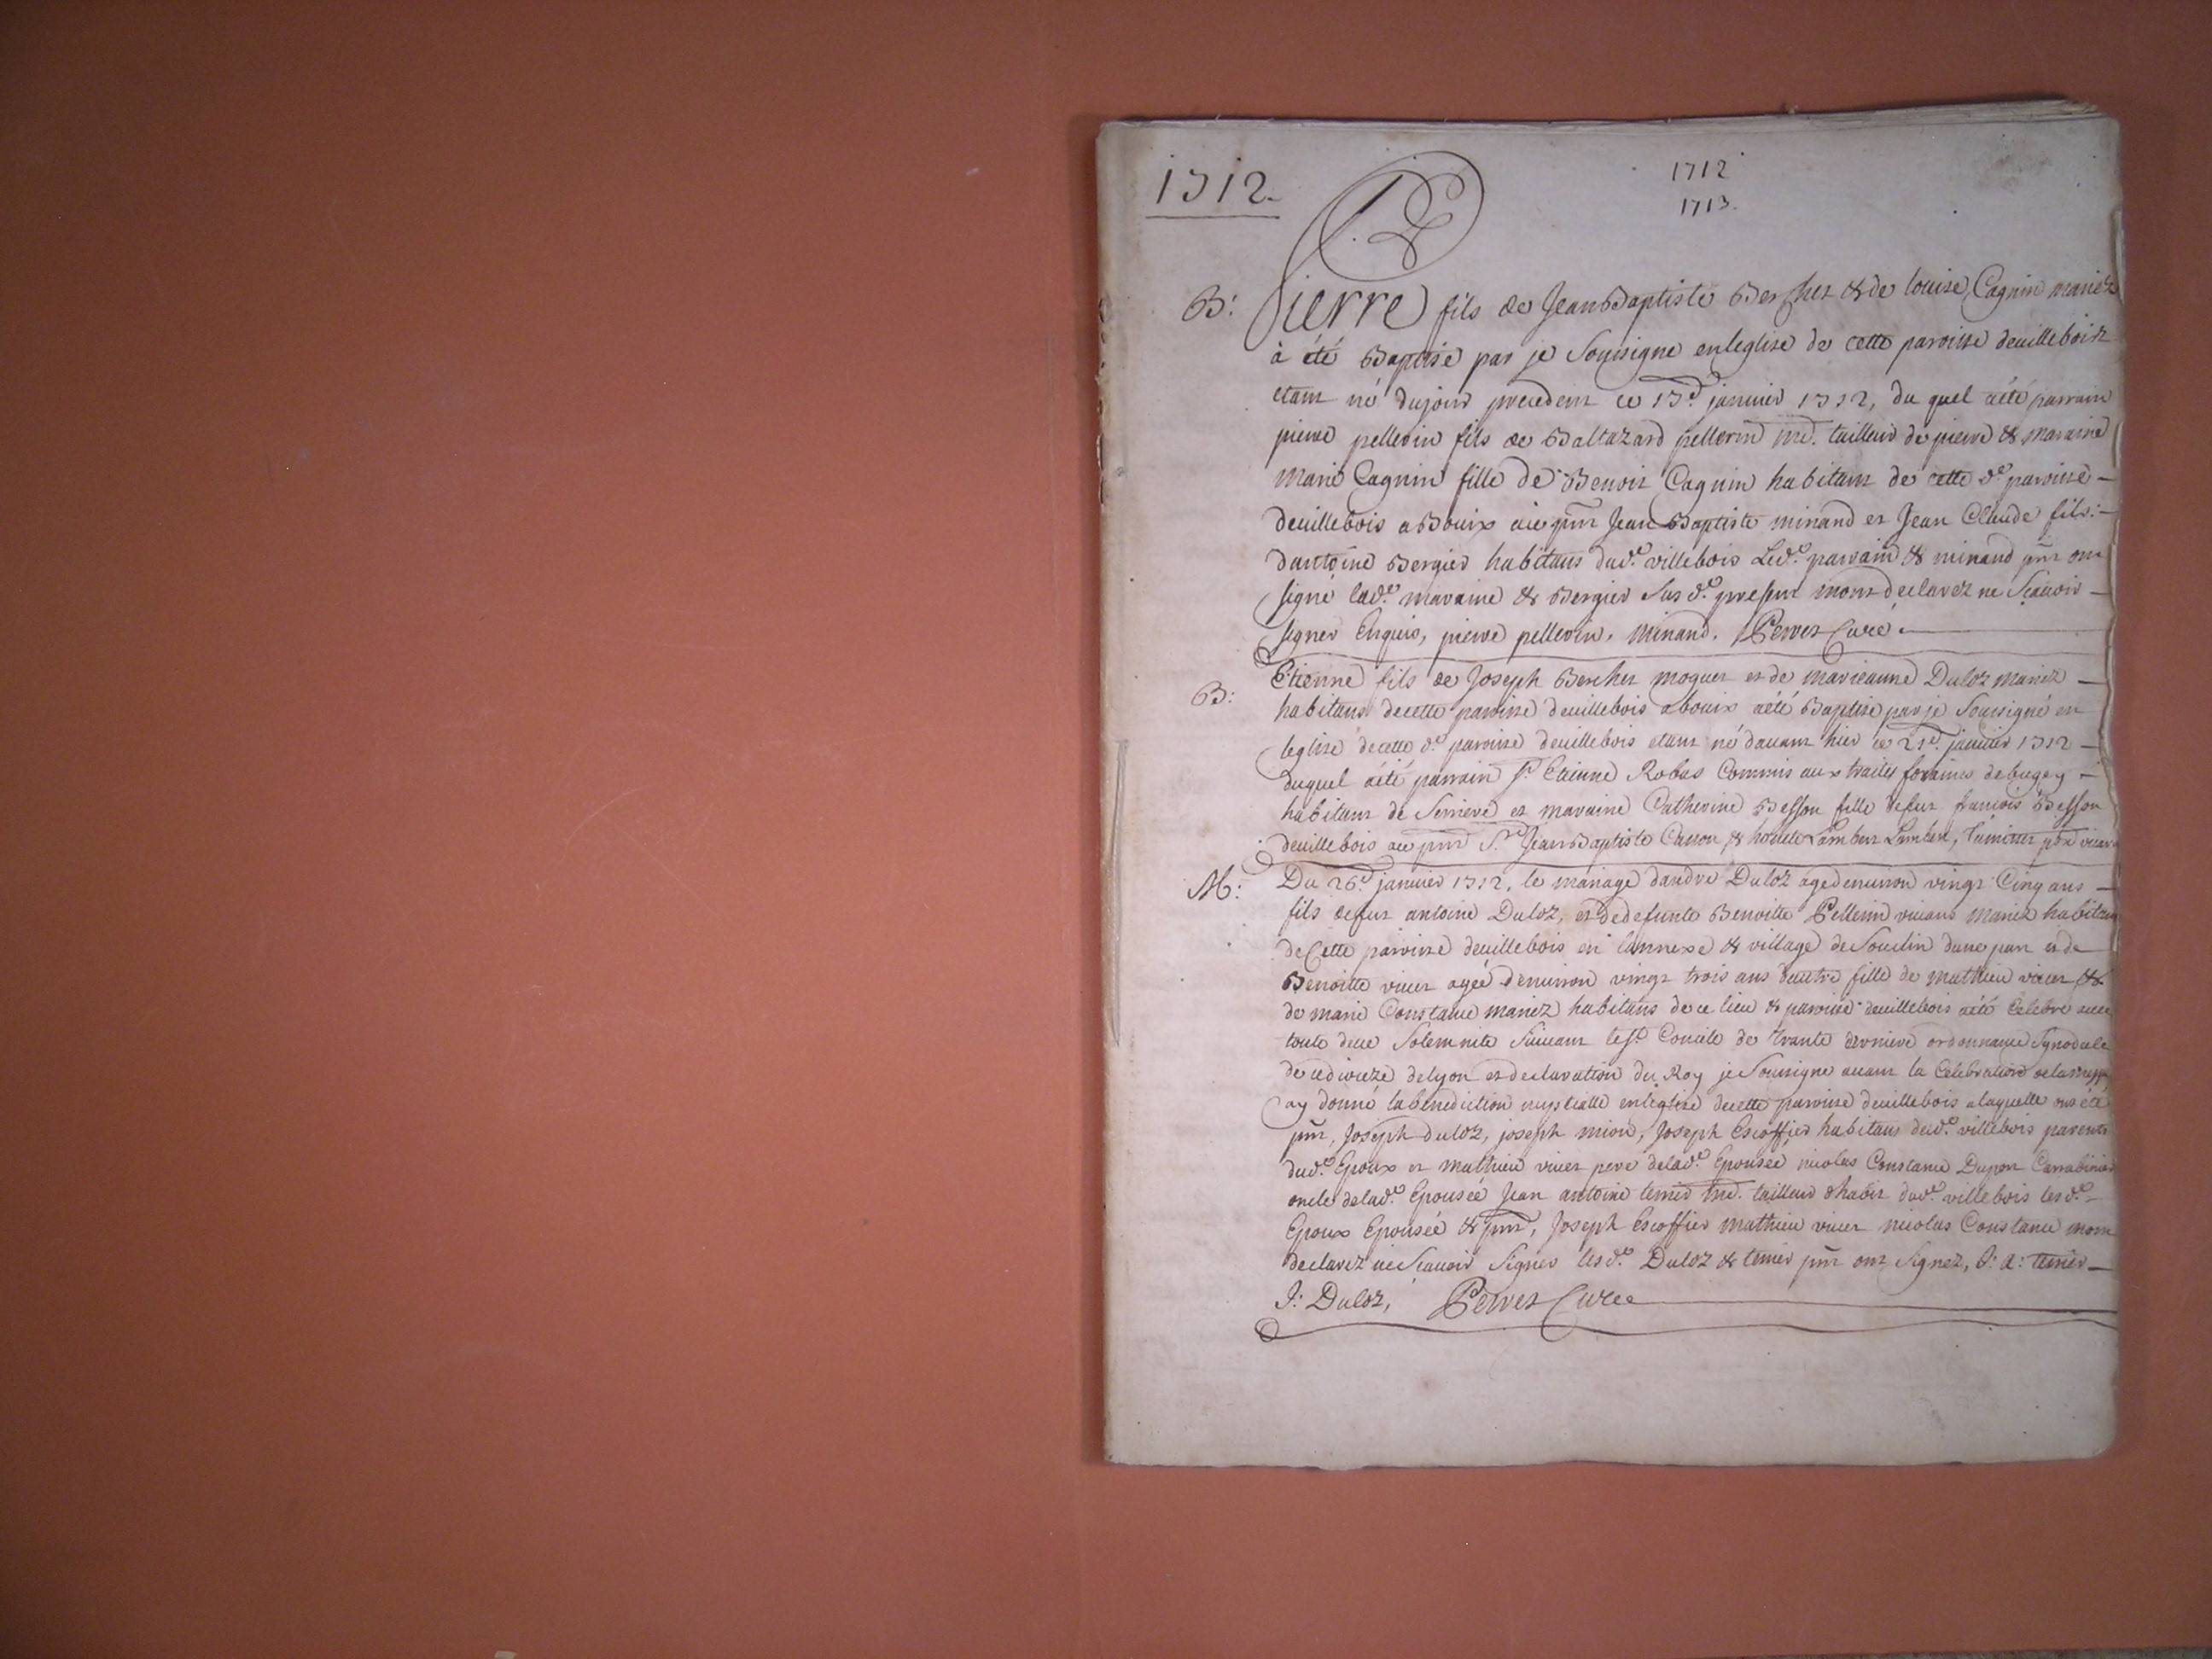 1712.
1712
1713.
B: Pierre fils de Jean Baptiste Bercher & de louise Cagnin mariez
à été Baptisé par je Sousigne enleglise de cette paroisse deuillebois
etant né dujour precedent ce 17e januier 1712, du quel aété parrain
pierre pellerin fils de Baltazard pellerin md. tailleur de pierre & maraine
Marie Cagnin fille de Benoit Cagnin habitant de cette de paroisse
deuillebois a Bouix aie pnt Jean Baptiste minand et Jean Claude fils
dantoine Bergier habitans dude villebois Lede parrain & minand pnt ont
signé lade maraine & Bergier sus de present mont declarez ne Sçauoir
signer Enquis, pierre pellerin, Minand, Perret Curé
B: Etienne fils de Joseph Bercher moquet et de marieanne Duloz mariez
habitans decette paroisse deuillebois abouix aété Baptisé par je Sousigné en
leglise decette de paroisse deuillebois etant né dauant hier ce 21e januier 1712
duquel aété parrain Sr Etienne Robas Commis aux traites foraines debugey
habitant de Serrieve et maraine Catherine Besson fille defut francois Besson
deuillebois aie pnt Sr Jean Baptiste & Lambert Lambert,
M: Du 26e januier 1712, le mariage dandré Duloz agé denuiron vingt Cinq ans
fils defut antoine Duloz, et dedefunte Benoitte Pellerin viuans mariez habitans
deCette paroisse deuillebois en lannexe & village de Souclin dune part et de
Benoitte viuer agée denuiron vingt trois ans dautre fille de mathieu viuer &
de marie Constance mariez habitans de ce lieu & paroisse deuillebois aété Celebré auec
toute deue Solemnité Suiuant leSt Concile de trante derniere ordonnance Synodale
de cediocèze delyon et declaration du Roy je Sousigne auant la Celebration delamesse
ay donné labenediction nuptialle enleglise decette paroisse deuillebois alaquelle ont été
pnt, Joseph duloz, joseph mion, Joseph Escoffier habitans dude villebois parents
dude Epoux et mathieu viuer pere delade Epousée nicolas Constance Dupon
oncle delade Epousée Jean antoine tenier md. tailleur dhabit dude villebois lesde
Epoux Epousée & pnt, Joseph Escoffier mathieu viuer nicolas Constance mont
declarez ne Scauoir Signer lesde Duloz & tenier pnt ont Signez, J: A: tenier
J: Duloz, Perret Curé